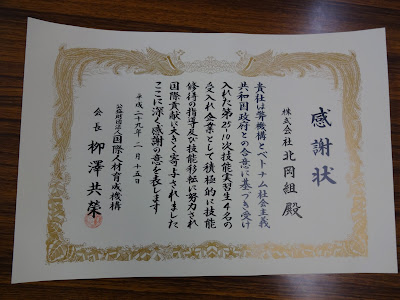 感謝状
株式会社北岡組 殿
貴社は弊機構とベトナム社会主義
共和国政府との合意に基づき受け
入れた第25-10次技能実習生4名の
受入れ企業として積極的に技能
修得の指導及び技能移転に努力され
国際貢献に大きく寄与されました
ここに深く感謝の意を表します
平成二十九年 二月十五日
公益財団法人国際人材育成機構
会長 柳澤共榮